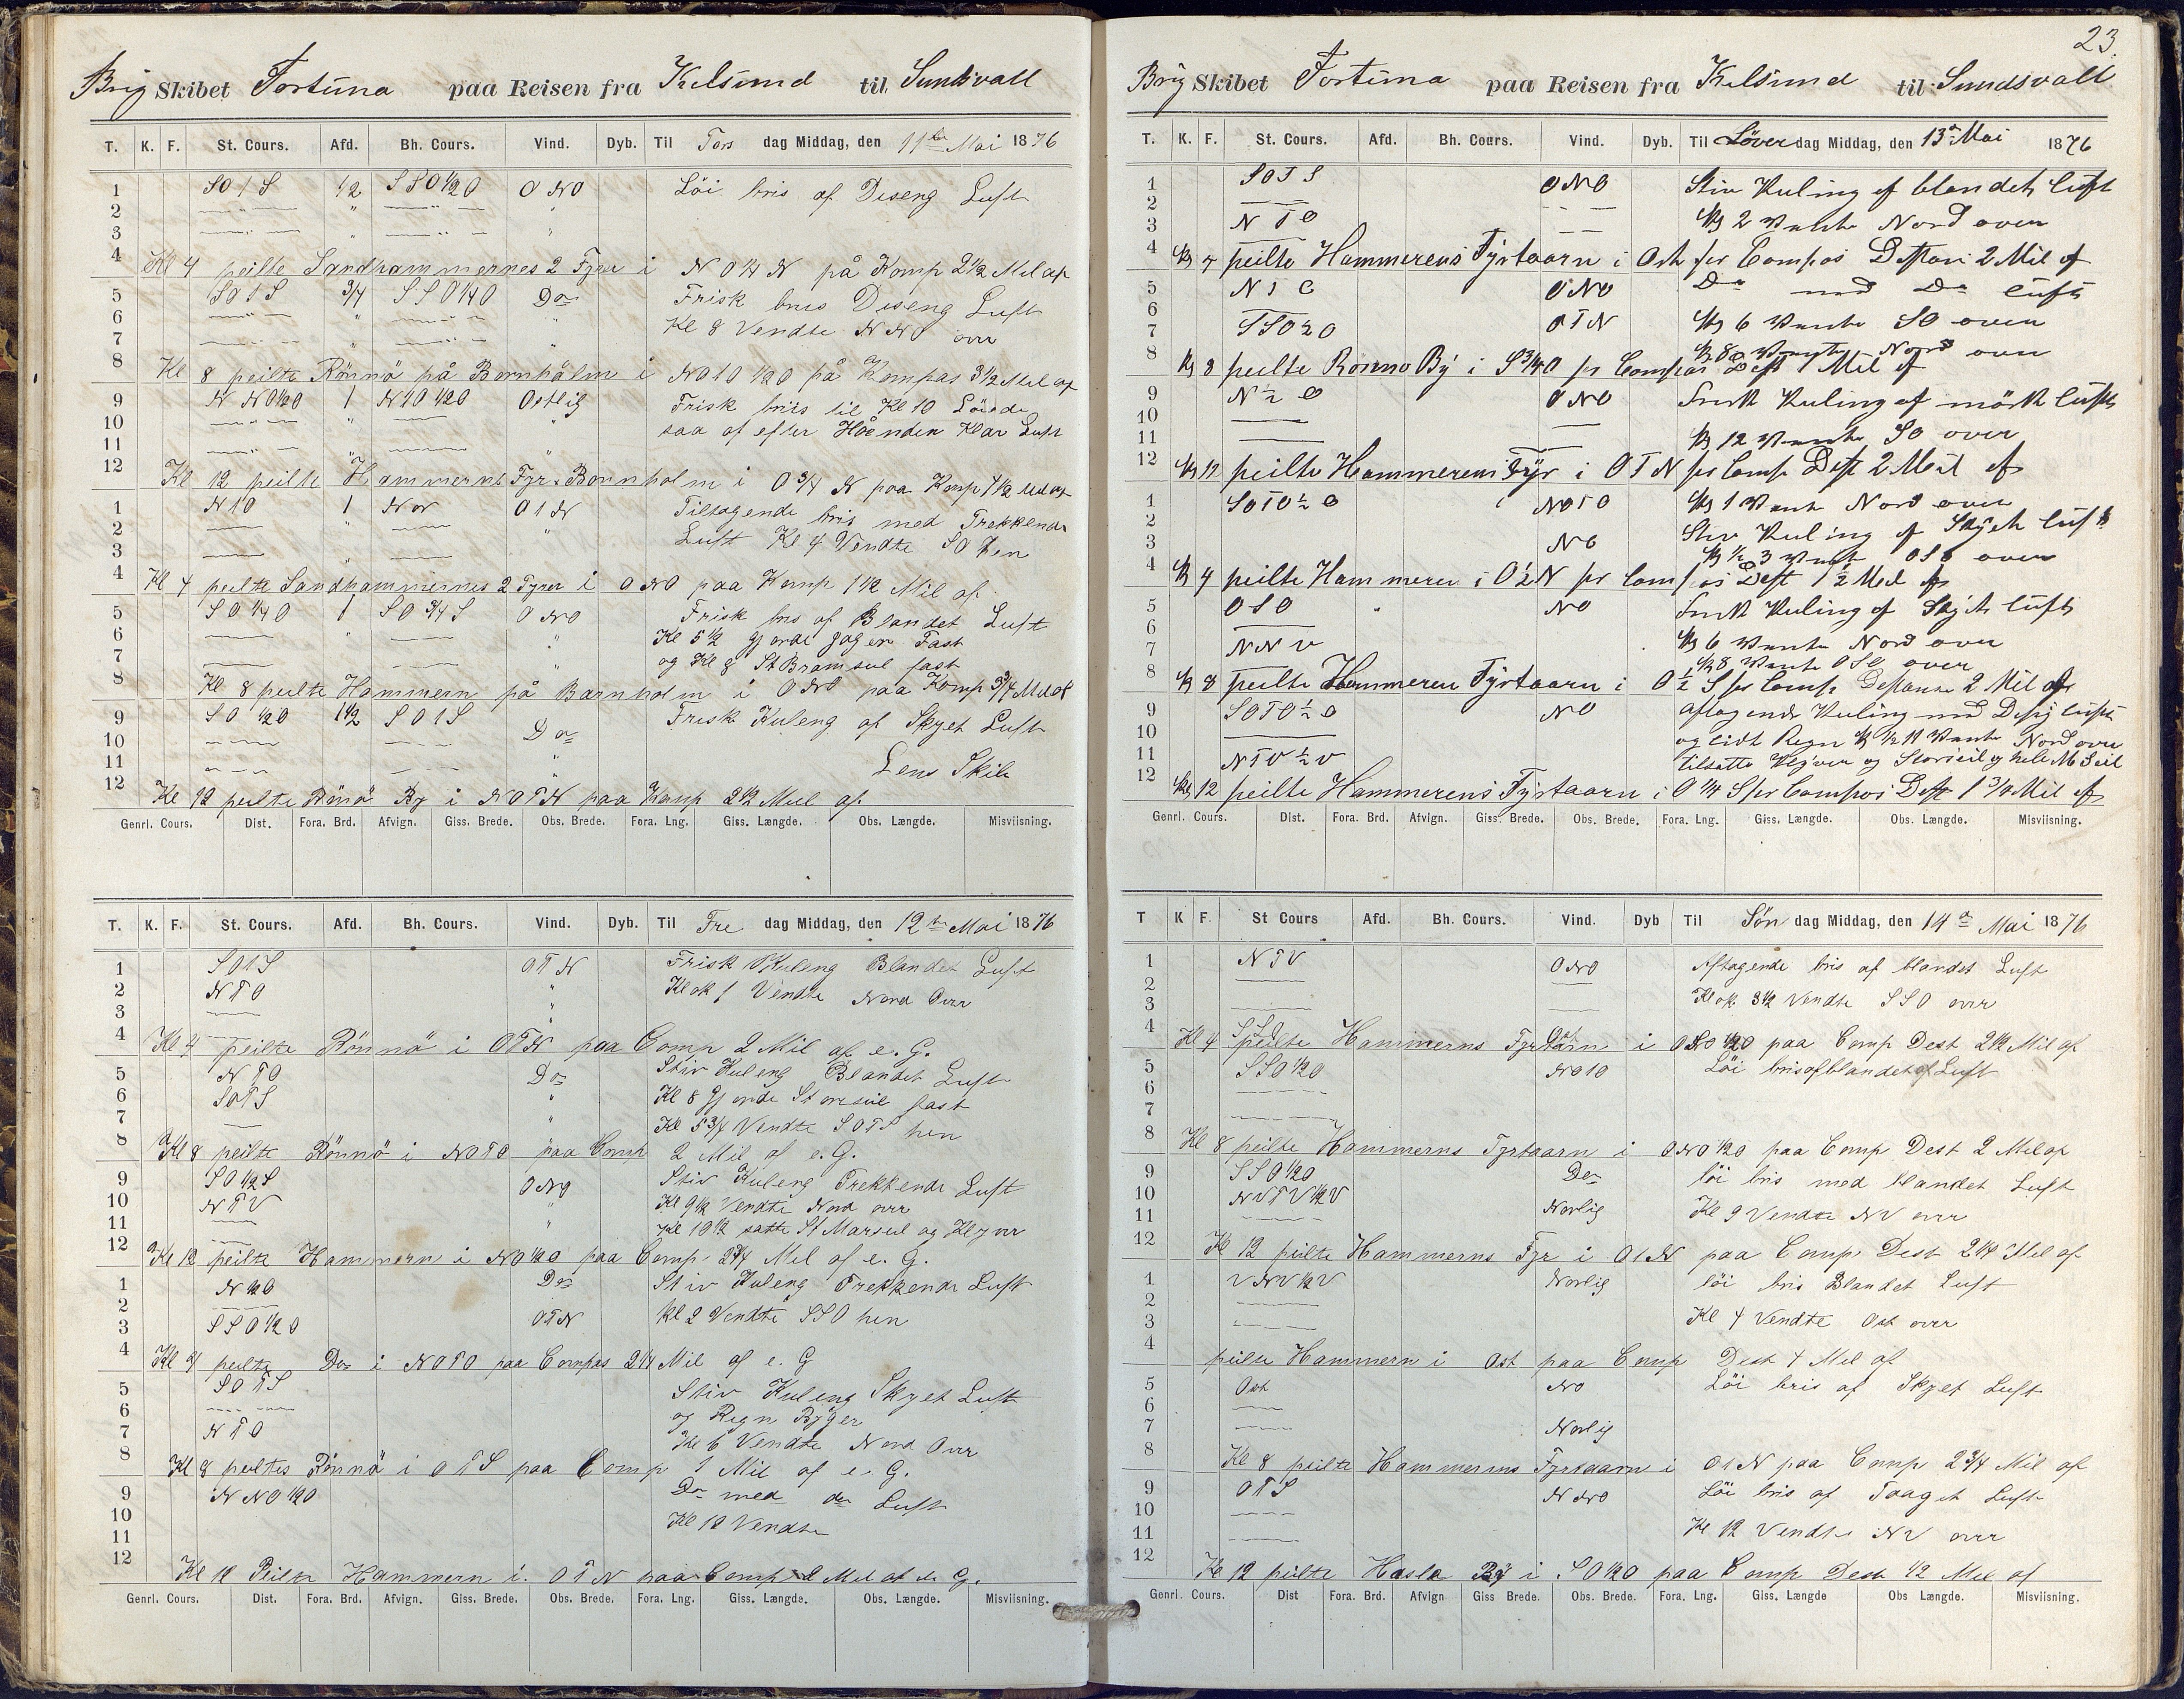 Brig Skibet Fortuna paa Reisen fra Kilsund til Sundsvall
T. K. F. St. Cours. Afd. Bh. Cours. Vind. Dyb. Til Tors dag Middag, den 11te Mai 1876
1 SO1S 1/2 SSO1/2O ONO Löi bris af Diseng Luft
2
3
4 Kl 4 peilte Sandhammernes 2 Fyre i NO1/4N på Komp 2 1/2 Mil af
5 SO1S 3/4 SSO1/4O Do Frisk bris Diseng Luft
6 Kl 8 Vendte NNO over
7
8 Kl 8 peilte Rönnö på Bornhålm i NO1O1/2O på Kompas 3 1/2 Mil af
9 NNO1/2O 1 N1O1/2O Ostlig Frisk bris til Kl 10 Löiede
10 saa af efter Hoenden Klar Luft
11
12 Kl 12 peilte Hammerns Fyr Bornholm i O3/4N paa Komp 4 1/2 Mil af
1 N1O 1 Nor O1N Tiltagende bris med Trekkende
2 Luft Kl 4 Vendte SO hen
3
4 Kl 4 peilte Sandhammernes 2 Fyrer i ONO paa Komp 1 1/2 Mil af
5 SO1/4O 1 SO3/4S ONO Frisk bris af Blandet Luft
6 Kl 5 1/2 gjorde Jageren Fast
7 og Kl 8 St Bramseil fast
8 Kl 8 peilte Hammern på Barnholm i ONO paa Komp 3/4 Mil af
9 SO1/2O 1 1/2 SO1S Do Frisk Kuleng af Skyet Luft
10
11 Lens Skib
12 Kl 12 peilte Rönö By i NOTN paa Komp 2 1/2 Mil af
Genrl. Cours. Dist. Fora. Brd. Afvign. Giss. Brede. Obs. Brede. Fora. Lng. Giss. Længde. Obs. Længde. Misviisning.
T. K. F. St. Cours. Afd. Bh. Cours. Vind. Dyb. Til Fre dag Middag, den 12te Mai 1876
1 SO1S OTN Frisk Kuleng Blandet Luft
2 NTO Klok 1 Vendte Nord Over
3
4 Kl 4 peilte Rönnö i OTN paa Comp 2 Mil af e. G.
5 NTO Do Stiv Kuleng Blandet Luft
6 SOTS Kl 8 Gjorde Storeseil fast
7 Kl 5 3/4 Vendte SOTS hen
8 Kl 8 peilte Rönnö i NOTO paa Comp 2 Mil af e. G.
9 SO1/2S ONO Stiv Kuleng Trekkende Luft
10 NTV Kl 9 1/2 Vendte Nord over
11 Kl 10 1/2 satte St Marseil og Klyver
12 Kl 12 peilte Hammern i NO1/2O paa Comp 2 3/4 Mil af e. G.
1 N1/2O Do Stiv Kuleng Trekkende Luft
2 Kl 2 Vendte SSO hen
3 SSO1/2O OTN
4 Kl 4 peilte Do i NOTO paa Compas 2 1/4 Mil af e. G
5 SOTS Stiv Kuleng Skyet Luft
6 og Regn Byger
7 NTO Kl 6 Vendte Nord Over
8 Kl 8 peiltes Rönnö i OTS paa Comp 1 Mil af e. G.
9 NNO1/2O Do med do Luft
10 Kl 12 Vendte
11
12 Kl 12 Peilte Hammern i OTN paa Comp 2 Mil af e. G.
Genrl. Cours. Dist. Fora. Brd. Afvign. Giss. Brede. Obs. Brede. Fora. Lng. Giss. Længde. Obs. Længde. Misviisning.
23.
Brig Skibet Fortuna paa Reisen fra Kilsund til Sundsvall
T. K. F. St. Cours. Afd. Bh. Cours. Vind. Dyb. Til Löver dag Middag, den 13de Mai 1876
1 SOTS ONO Stiv Kuling af blandet luft
2 Kl 2 Vente Nord over
3 NTO
4 Kl 4 peilte Hammerens Fyrtaarn i Ost per Compas Distan 2 Mil af
5 NTO ONO Do med Do luft
6 Kl 6 Vente SO over
7 SSO2O OTN Kl 8 Vente Nord over
8 Kl 8 peilte Rönno By i S3/4O per Compas Dist 1 Mil af
9 N1/2O ONO Frisk Kuling af mörk luft
10
11 Kl 12 Vente SO over
12 Kl 12 peilte Hammerens Fyr i OTN per Comp Dist 2 Mil af
1 SOTO1/2O NOTO Kl 1 Vente Nord over
2 Stiv Kuling af Skyet luft
3 NO Kl 1/2 3 Vente OSO over
4 Kl 4 peilte Hammeren i O1/2N per Compas Dist 1 1/2 Mil af
5 OSO NO Frisk Kuling af Skyet luft
6
7 NNV Kl 6 Vente Nord over
Kl 8 Vente OSO over
8 Kl 8 peilte Hammeren Fyrtaarn i O1/2S per Comp Distante 2 Mil af
9 SOTO1/2O NO aftagende Kuling med Disig luft
10 og lidt Regn Kl 1/2 11 Vente Nord over
11 NTV1/2V tilsatte Klyver og Storseil og hele M Seil
12 Kl 12 peilte Hammerens Fyrtaarn i O1/4S per Compas Dist 1 3/4 Mil af
Genrl. Cours. Dist. Fora. Brd. Afvign. Giss. Brede. Obs. Brede. Fora. Lng. Giss. Længde. Obs. Længde. Misviisning.
T K F. St Cours Afd. Bh. Cours. Vind. Dyb Til Søn dag Middag, den 14de Mai 1876
1 NTV ONO Aftagende bris af blandet Luft
2 Klok 3 1/2 Vendte SSO over
3
4 Kl 4 peilte Hammerns Fyrtårn i 1/2O paa Comp Dest 2 1/2 Mil af
5 SSO1/2O NO1O Löi bris af blandet Luft
6
7
8 Kl 8 peilte Hammerns Fyrtaarn i ONO1/2O paa Comp Dest 2 Mil af
9 SSO1/2O Do löi bris med blandet Luft
10 NVTV1/2V Norlig Kl 9 Vendte NV over
11
12 Kl 12 peilte Hammerns Fyr i O1N paa Comp Dest 2 1/4 Mil af
1 VNV1/2V Norlig löi bris Blandet Luft
2
3 Kl 4 Vendte Ost over
4 peilte Hammern i Ost paa Comp Dest 4 Mil af
5 Ost NO Löi bris af Skyet Luft
6
7 Norlig
8 Kl 8 peilte Hammerens Fyrtaarn i O1N paa Comp 2 3/4 Mil af
9 OTS NNO Löi bris af Taaget Luft
10
11 Kl 12 Vendte NV over
12 Kl 12 peilte Hasle By i SO1/2O paa Comp Dest 1/2 Mil af
Genrl. Cours. Dist Fora. Brd. Afvign Giss Brede. Obs. Brede. Fora. Lng. Giss. Længde Obs Længde. Misviisning.